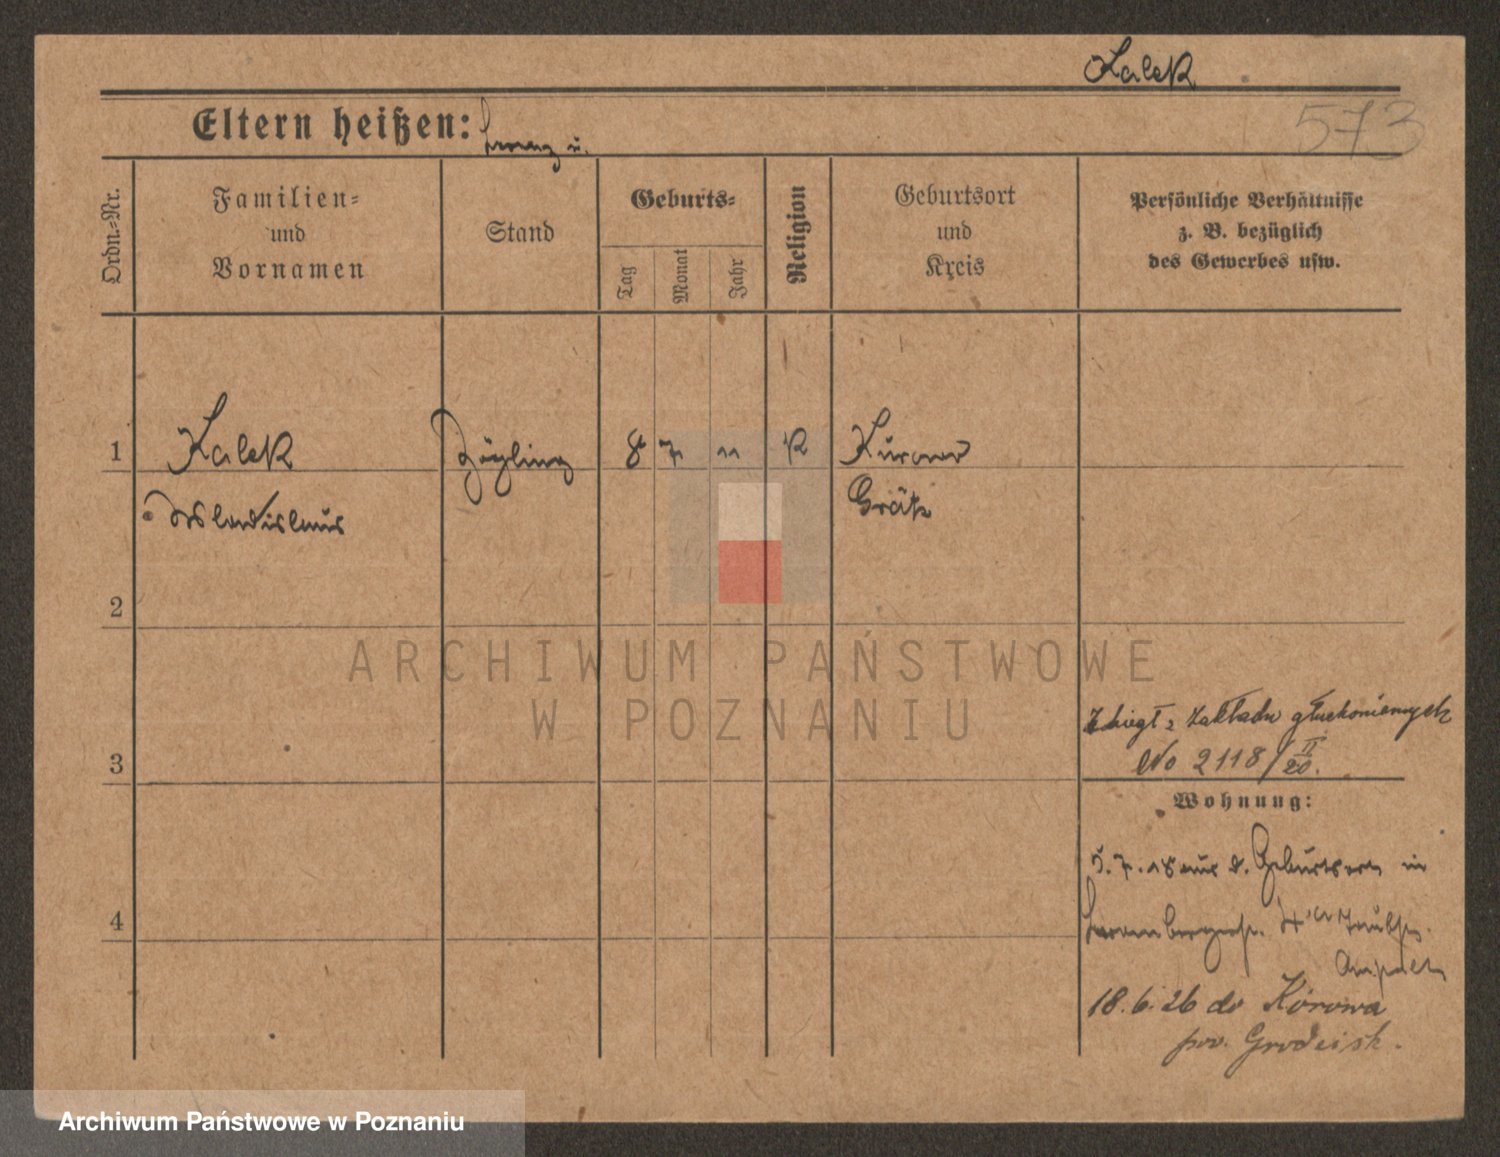 Kalek
573
Eltern heißen: Lorenz u.
Ordn.-Nr.
Familien-
und
Vornamen
Stand
Geburts-
Tag
Monat
Jahr
Religion
Geburtsort
und
Kreis
Persönliche Verhältnisse
z. B. bezüglich
des Gewerbes usw.
1
Kalek
Zögling
8
7
11
K
Kurowo
Wladislaus
Grätz
2
3
4
Zbiegł z zakładu głuchoniemych
No 2118/II 20.
Wohnung:
5.7.18 aus d. Geburtsort in
18.6.26 do Kórowa
pow. Grodzisk.
ARCHIWUM PAŃSTWOWE
W POZNANIU
Archiwum Państwowe w Poznaniu